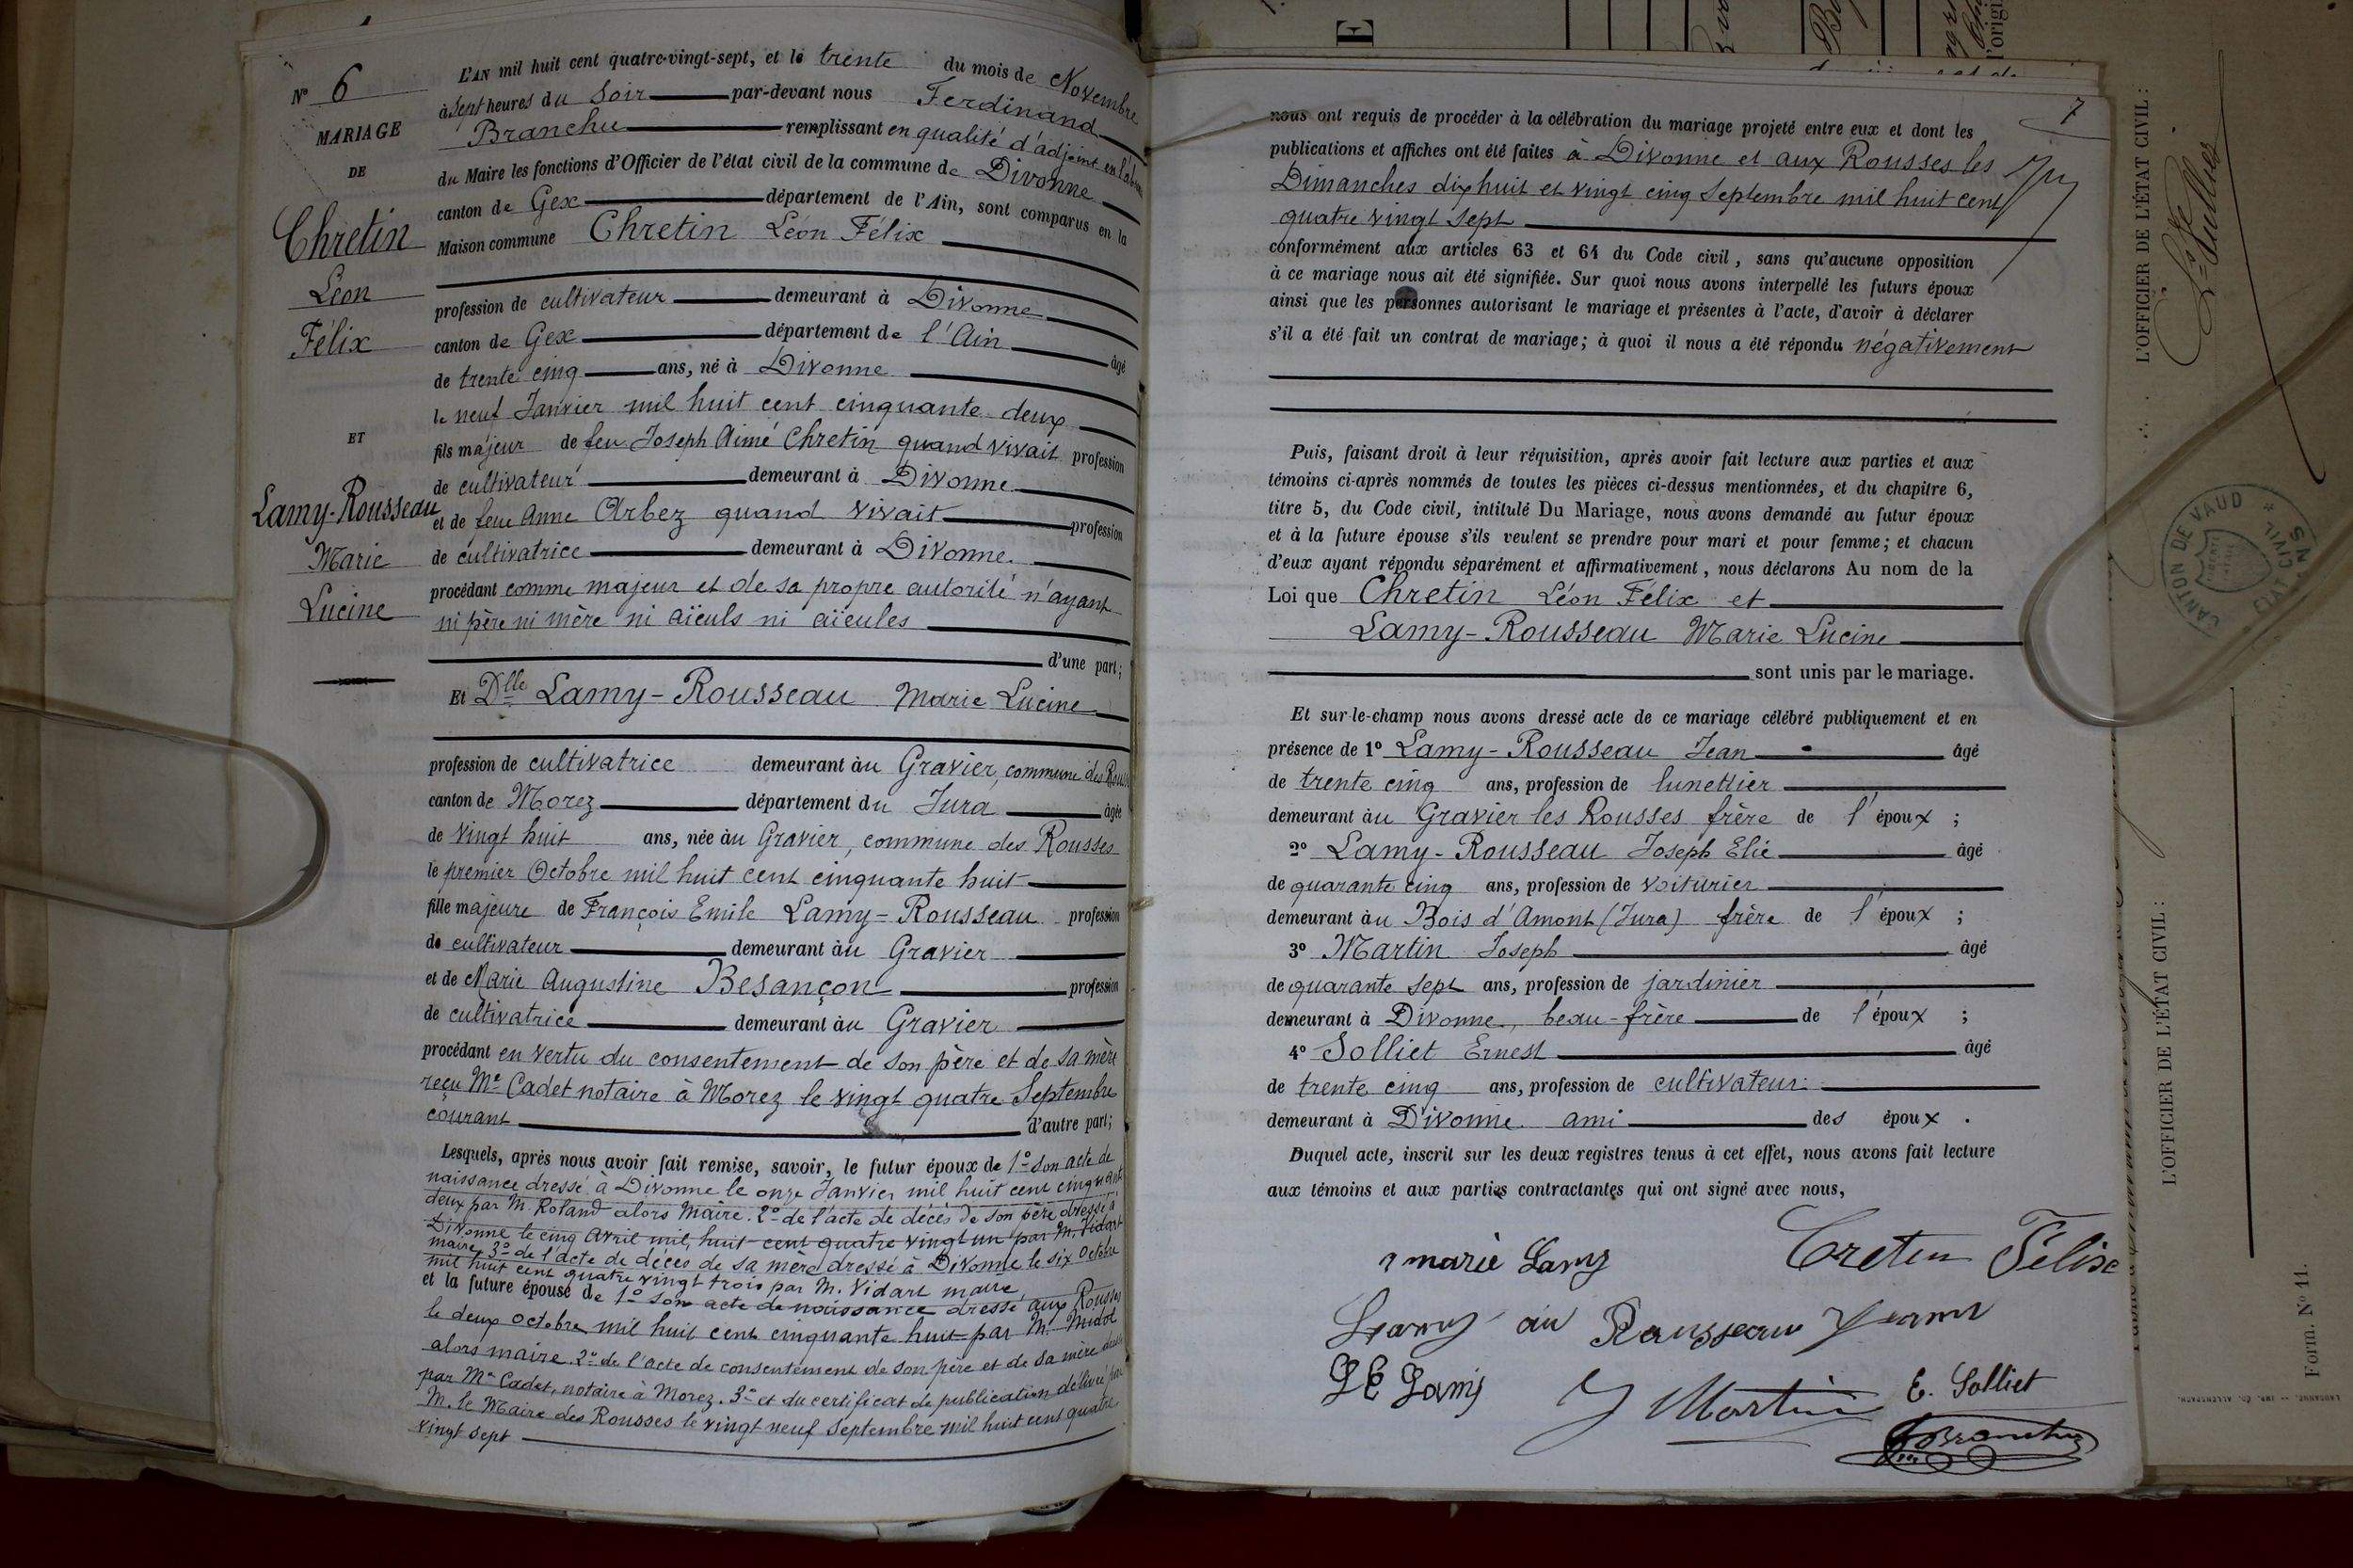 N° 6
MARIAGE
DE
Chretin
Léon
Félix
ET
Lamy-Rousseau
Marie
Lucine
L'AN mil huit cent quatre-vingt-sept, et le trente du mois de Novembre
à sept heures du Soir par-devant nous Ferdinand
Branchu remplissant en qualité d'adjoint en
du Maire les fonctions d'Officier de l'état civil de la commune de Divonne
canton de Gex département de l'Ain, sont comparus en la
Maison commune Chretin Léon Félix
profession de cultivateur demeurant à Divonne
canton de Gex département de l'Ain âgé
de trente cinq ans, né à Divonne
le neuf Janvier mil huit cent cinquante deux
fils majeur de feu Joseph Aimé Chretin quand vivait profession
de cultivateur demeurant à Divonne
et de feue Anne Arbez quand vivait profession
de cultivatrice demeurant à Divonne.
procédant comme majeur et de sa propre autorité n'ayant
ni père ni mère ni aïeuls ni aïeules
d'une part;
Et Dlle Lamy-Rousseau Marie Lucine
profession de cultivatrice demeurant àu Gravier, commune des
canton de Morez département du Jura âgée
de vingt huit ans, née àu Gravier, commune des Rousses
le premier Octobre mil huit cent cinquante huit
fille majeure de François Emile Lamy-Rousseau profession
de cultivateur demeurant àu Gravier
et de Marie Augustine Besançon profession
de cultivatrice demeurant àu Gravier
procédant en vertu du consentement de son père et de sa mère
reçu Me Cadet notaire à Morez le vingt quatre Septembre
courant d'autre part;
Lesquels, après nous avoir fait remise, savoir, le futur époux de 1° son acte de
naissance dressé à Divonne le onze Janvier mil huit cent cinquante
deux par M. Roland alors Maire. 2° de l'acte de décès de son père dressé à
Divonne le cinq Avril mil huit cent quatre vingt un par M. Vidart
maire, 3° de l'acte de décès de sa mère dressé à Divonne le six Octobre
mil huit cent quatre vingt trois par M. Vidart maire,
et la future épouse de 1° son acte de naissance dressé aux Rousses
le deux octobre mil huit cent cinquante huit par M.
alors maire. 2° de l'acte de consentement de son père et de sa mère
par Me Cadet, notaire à Morez. 3° et du certificat de publication délivré par
M. le Maire des Rousses le vingt neuf Septembre mil huit cent quatre
vingt sept
7
nous ont requis de procéder à la célébration du mariage projeté entre eux et dont les
publications et affiches ont été faites à Divonne et aux Rousses les
Dimanches dix huit et vingt cinq Septembre mil huit cent
quatre vingt sept
conformément aux articles 63 et 64 du Code civil, sans qu'aucune opposition
à ce mariage nous ait été signifiée. Sur quoi nous avons interpellé les futurs époux
ainsi que les personnes autorisant le mariage et présentes à l'acte, d'avoir à déclarer
s'il a été fait un contrat de mariage; à quoi il nous a été répondu négativement
Puis, faisant droit à leur réquisition, après avoir fait lecture aux parties et aux
témoins ci-après nommés de toutes les pièces ci-dessus mentionnées, et du chapitre 6,
titre 5, du Code civil, intitulé Du Mariage, nous avons demandé au futur époux
et à la future épouse s'ils veulent se prendre pour mari et pour femme; et chacun
d'eux ayant répondu séparément et affirmativement, nous déclarons Au nom de la
Loi que Chretin Léon Félix et
Lamy-Rousseau Marie Lucine
sont unis par le mariage.
Et sur-le-champ nous avons dressé acte de ce mariage célébré publiquement et en
présence de 1° Lamy-Rousseau Jean âgé
de trente cinq ans, profession de lunettier
demeurant àu Gravier les Rousses frère de l'époux ;
2° Lamy-Rousseau Joseph Elie âgé
de quarante cinq ans, profession de voiturier
demeurant àu Bois d'Amont (Jura) frère de l'époux ;
3° Martin Joseph âgé
de quarante sept ans, profession de jardinier
demeurant à Divonne, beau-frère de l'époux ;
4° Solliet Ernest âgé
de trente cinq ans, profession de cultivateur
demeurant à Divonne ami des époux .
Duquel acte, inscrit sur les deux registres tenus à cet effet, nous avons fait lecture
aux témoins et aux parties contractantes qui ont signé avec nous,
marie Lamy Cretin Félix
Rousseau
J E Lamy J Martin E. Solliet
Branchu
L'OFFICIER DE L'ÉTAT CIVIL :
L'OFFICIER DE L'ÉTAT CIVIL :
CANTON DE VAUD
ETAT CIVIL
Form. N° 11.